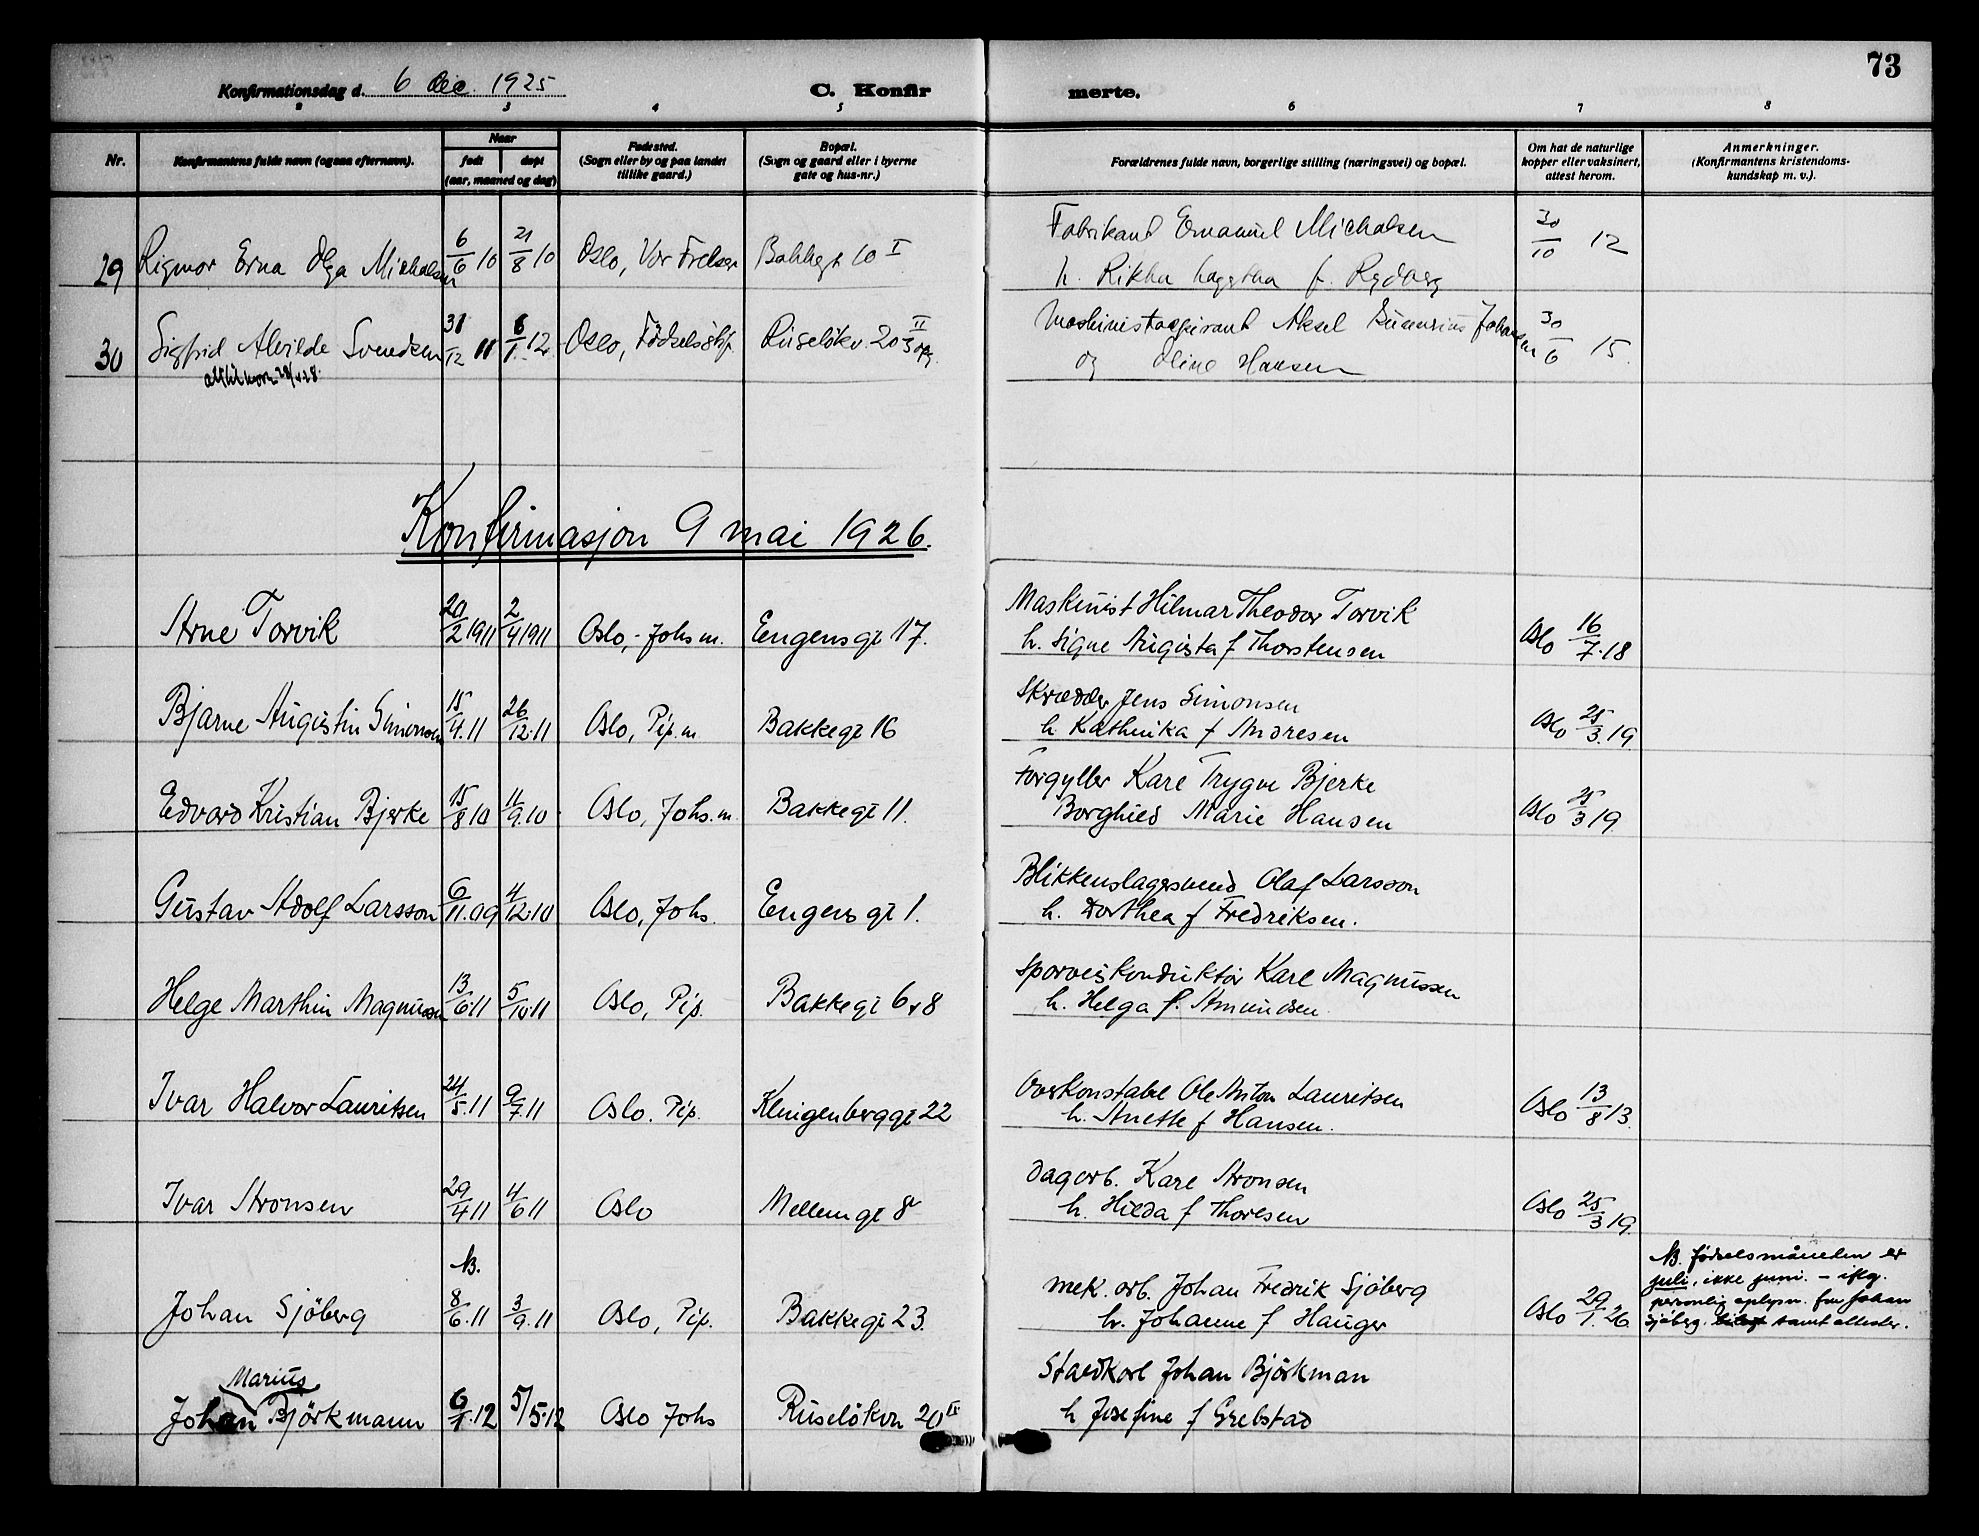 73
Konfirmationsdag d. 6 dec. 1925
C. Konfir
merte.
2 3 4 5 6 7 8
Nr.
Konfirmantens fulde navn (ogsaa efternavn).
Naar
født
døpt
(aar, maaned og dag)
Fødested.
(Sogn eller by og paa landet
tillike gaard.)
Bopæl.
(Sogn og gaard eller i byerne
gate og hus-nr.)
Forældrenes fulde navn, borgerlige stilling (næringsvei) og bopæl.
Om hat de naturlige
kopper eller vaksinert,
attest herom.
Anmerkninger.
(Konfirmantens kristendoms-
kundskap m. v.).
29 Rigmor Erna Olga Michalsen 6/6 10 21/8 10 Oslo, Vor Frelser Bakkegt 10 I
Fabrikant Emanuel Michalsen
h. f. Rydberg
30/10 12
30 Sigfrid Alvilde Svendsen 31/12 11 6/1 12 Oslo, Fødselsstif. Ruseløkv. 20 II 3 opg
Maskinistaspirant Aksel Johansen
og Oline Hansen
30/6 15.
Konfirmasjon 9 mai 1926.
Arne Torvik 20/2 1911 2/4 1911 Oslo, Johs m. Eengensgt 17.
Maskinist Hilmar Theodor Torvik
h. Signe Augusta f Thorstensen
Oslo 16/7.18
Bjarne Augustin Simonsen 15/9.11 26/12.11 Oslo, Pip.m Bakkegt 16
Skrædder Jens Simonsen
h Kathinka f Andresen
Oslo 25/3.19
Edvard Kristian Bjerke 15/8 10 11/9.10 Oslo, Johs.m Bakkegt 11.
Forgyller Karl Trygve Bjerke
Borghild Marie Hansen
Oslo 25/3 19
Gustav Adolf Larsson 6/11.09 4/12.10 Oslo, Johs. Engensgt 1.
Blikkenslagersvend Olaf Larsson
h. Dorthea f Fredriksen.
Helge Marthin Magnussen 13/6.11 5/10.11 Oslo, Pip. Bakkegt 6 & 8
Sporveiskonduktør Karl Magnussen
h. Helga f. Amundsen
Ivar Halvor Lauritsen 24/5.11 9/7.11 Oslo. Pip. Klingenberggt 22
Overkonstabel Ole Anton Lauritsen
h. Anette f Hansen.
Oslo 13/8 13.
Ivar Aronsen 29/4 11 4/6 11 Oslo Mellemgt 8
Dagarb. Karl Aronsen
h. Hilda f Thoresen
Oslo 25/3 19.
NB.
Johan Sjöberg 8/6.11 3/9.11 Oslo, Pip. Bakkegt 23.
Mek. arb. Johan Fredrik Sjöberg
h. Johanne f Hauger
Oslo 29/1.26
NB. Fødselsmåneden er
juli, ikke juni. - iflg.
personlig oplysn. fra Johan
Sjøberg. samt attester.
Marius
Johan Björkmann 6/1.12 5/5.12 Oslo Johs Ruseløkvn 20 II
Staldkarl Johan Björkman
h Josefine f Grebstad